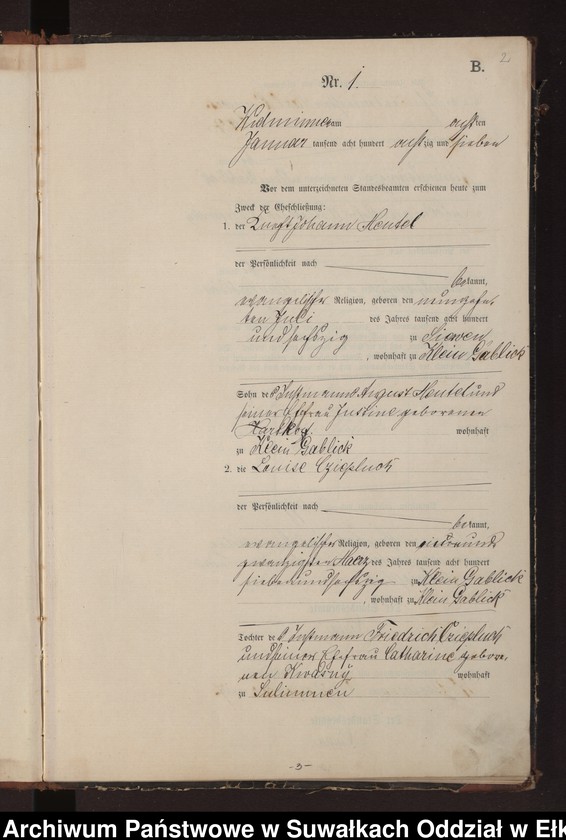 2
B.
Nr. 1.
Widminnen am achten
Januar tausend acht hundert achtzig und sieben
Vor dem unterzeichneten Standesbeamten erschienen heute zum
Zweck der Eheschließung:
1. der Knecht Johann Heutel
der Persönlichkeit nach
bekannt,
evangelischer Religion, geboren den
ten Juli des Jahres tausend acht hundert
undsechszig zu Siewen
, wohnhaft zu Klein Gablick
Sohn des Instmann August Heutel und
seiner Ehefrau Justine geborenen
wohnhaft
zu Klein Gablick
2. die Louise Cziepluch
der Persönlichkeit nach
bekannt,
evangelischer Religion, geboren den einund
zwanzigsten Maerz des Jahres tausend acht hundert
siebenundsechszig zu Klein Gablick
, wohnhaft zu Klein Gablick
Tochter des Instmann Friedrich Cziepluch
und seiner Ehefrau Catharine gebore,
nen Kwasny wohnhaft
zu Sulimmen
-3-
Archiwum Państwowe w Suwałkach Oddział w Ełk